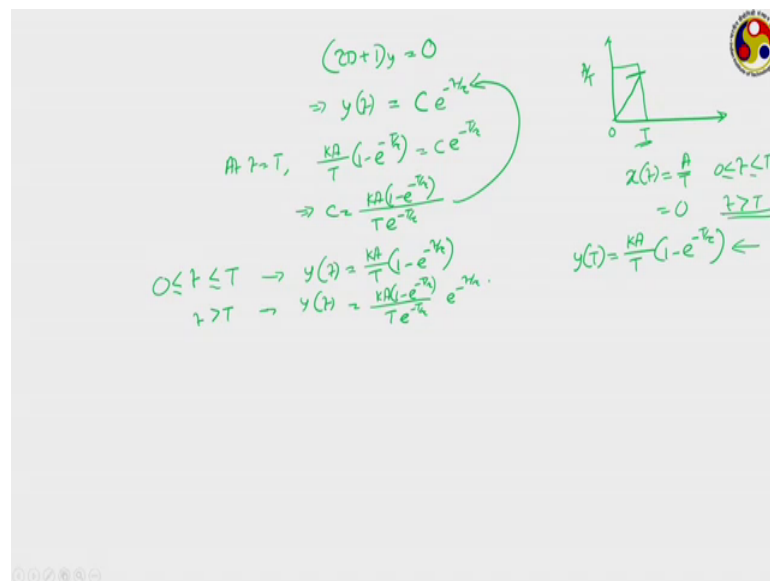 (τD+1)y = 0
⇒ y(t) = C e^{-t/τ}
At t=T, KA/T (1-e^{-T/τ}) = C e^{-T/τ}
⇒ C = KA(1-e^{-T/τ}) / T e^{-T/τ}
0≤t≤T → y(t) = KA/T (1-e^{-t/τ})
t>T → y(t) = KA(1-e^{-T/τ}) / T e^{-T/τ} e^{-t/τ}.
A/T
0 T
x(t) = A/T 0≤t≤T
= 0 t>T
y(T) = KA/T (1-e^{-T/τ}) ←